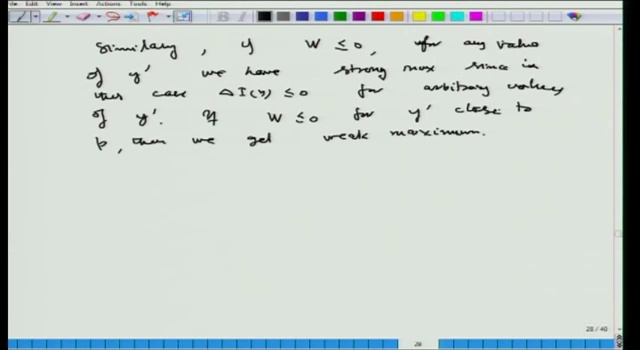 File Edit View Insert Actions Tools Help
Similary, if W ≤ 0, for any value
of y' we have strong max since in
this case ΔI(y) ≤ 0 for arbitrary values
of y'. If W ≤ 0 for y' close to
p, then we get weak maximum.
28 / 40
28